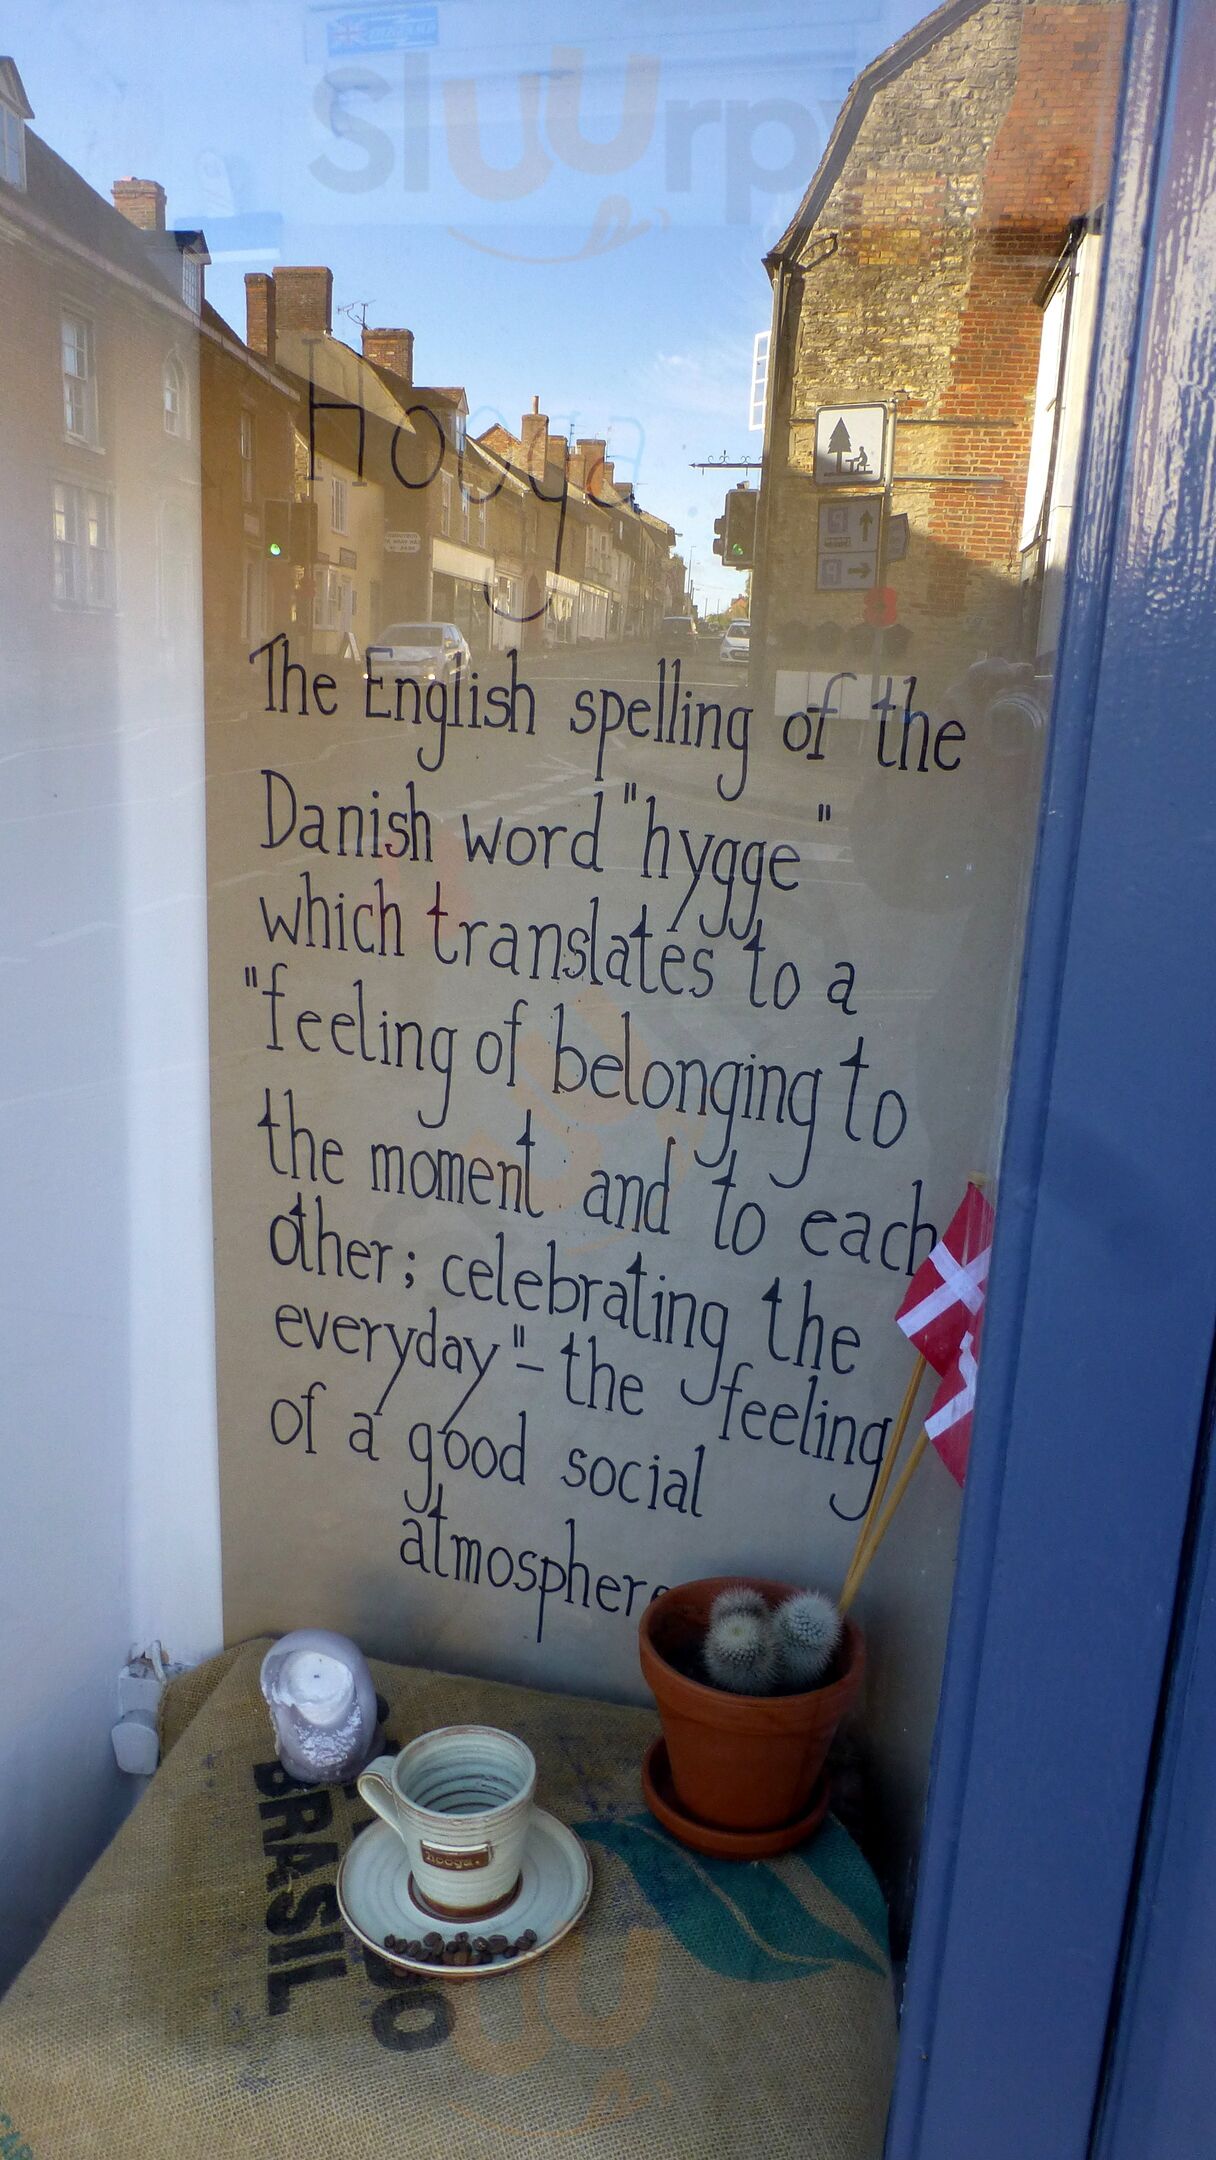 Sluurpy
Hooga
The English spelling of the
Danish word "hygge"
which translates to a
"feeling of belonging to
the moment and to each
other; celebrating the
everyday" - the feeling
of a good social
atmosphere
hooga.
BRASIL